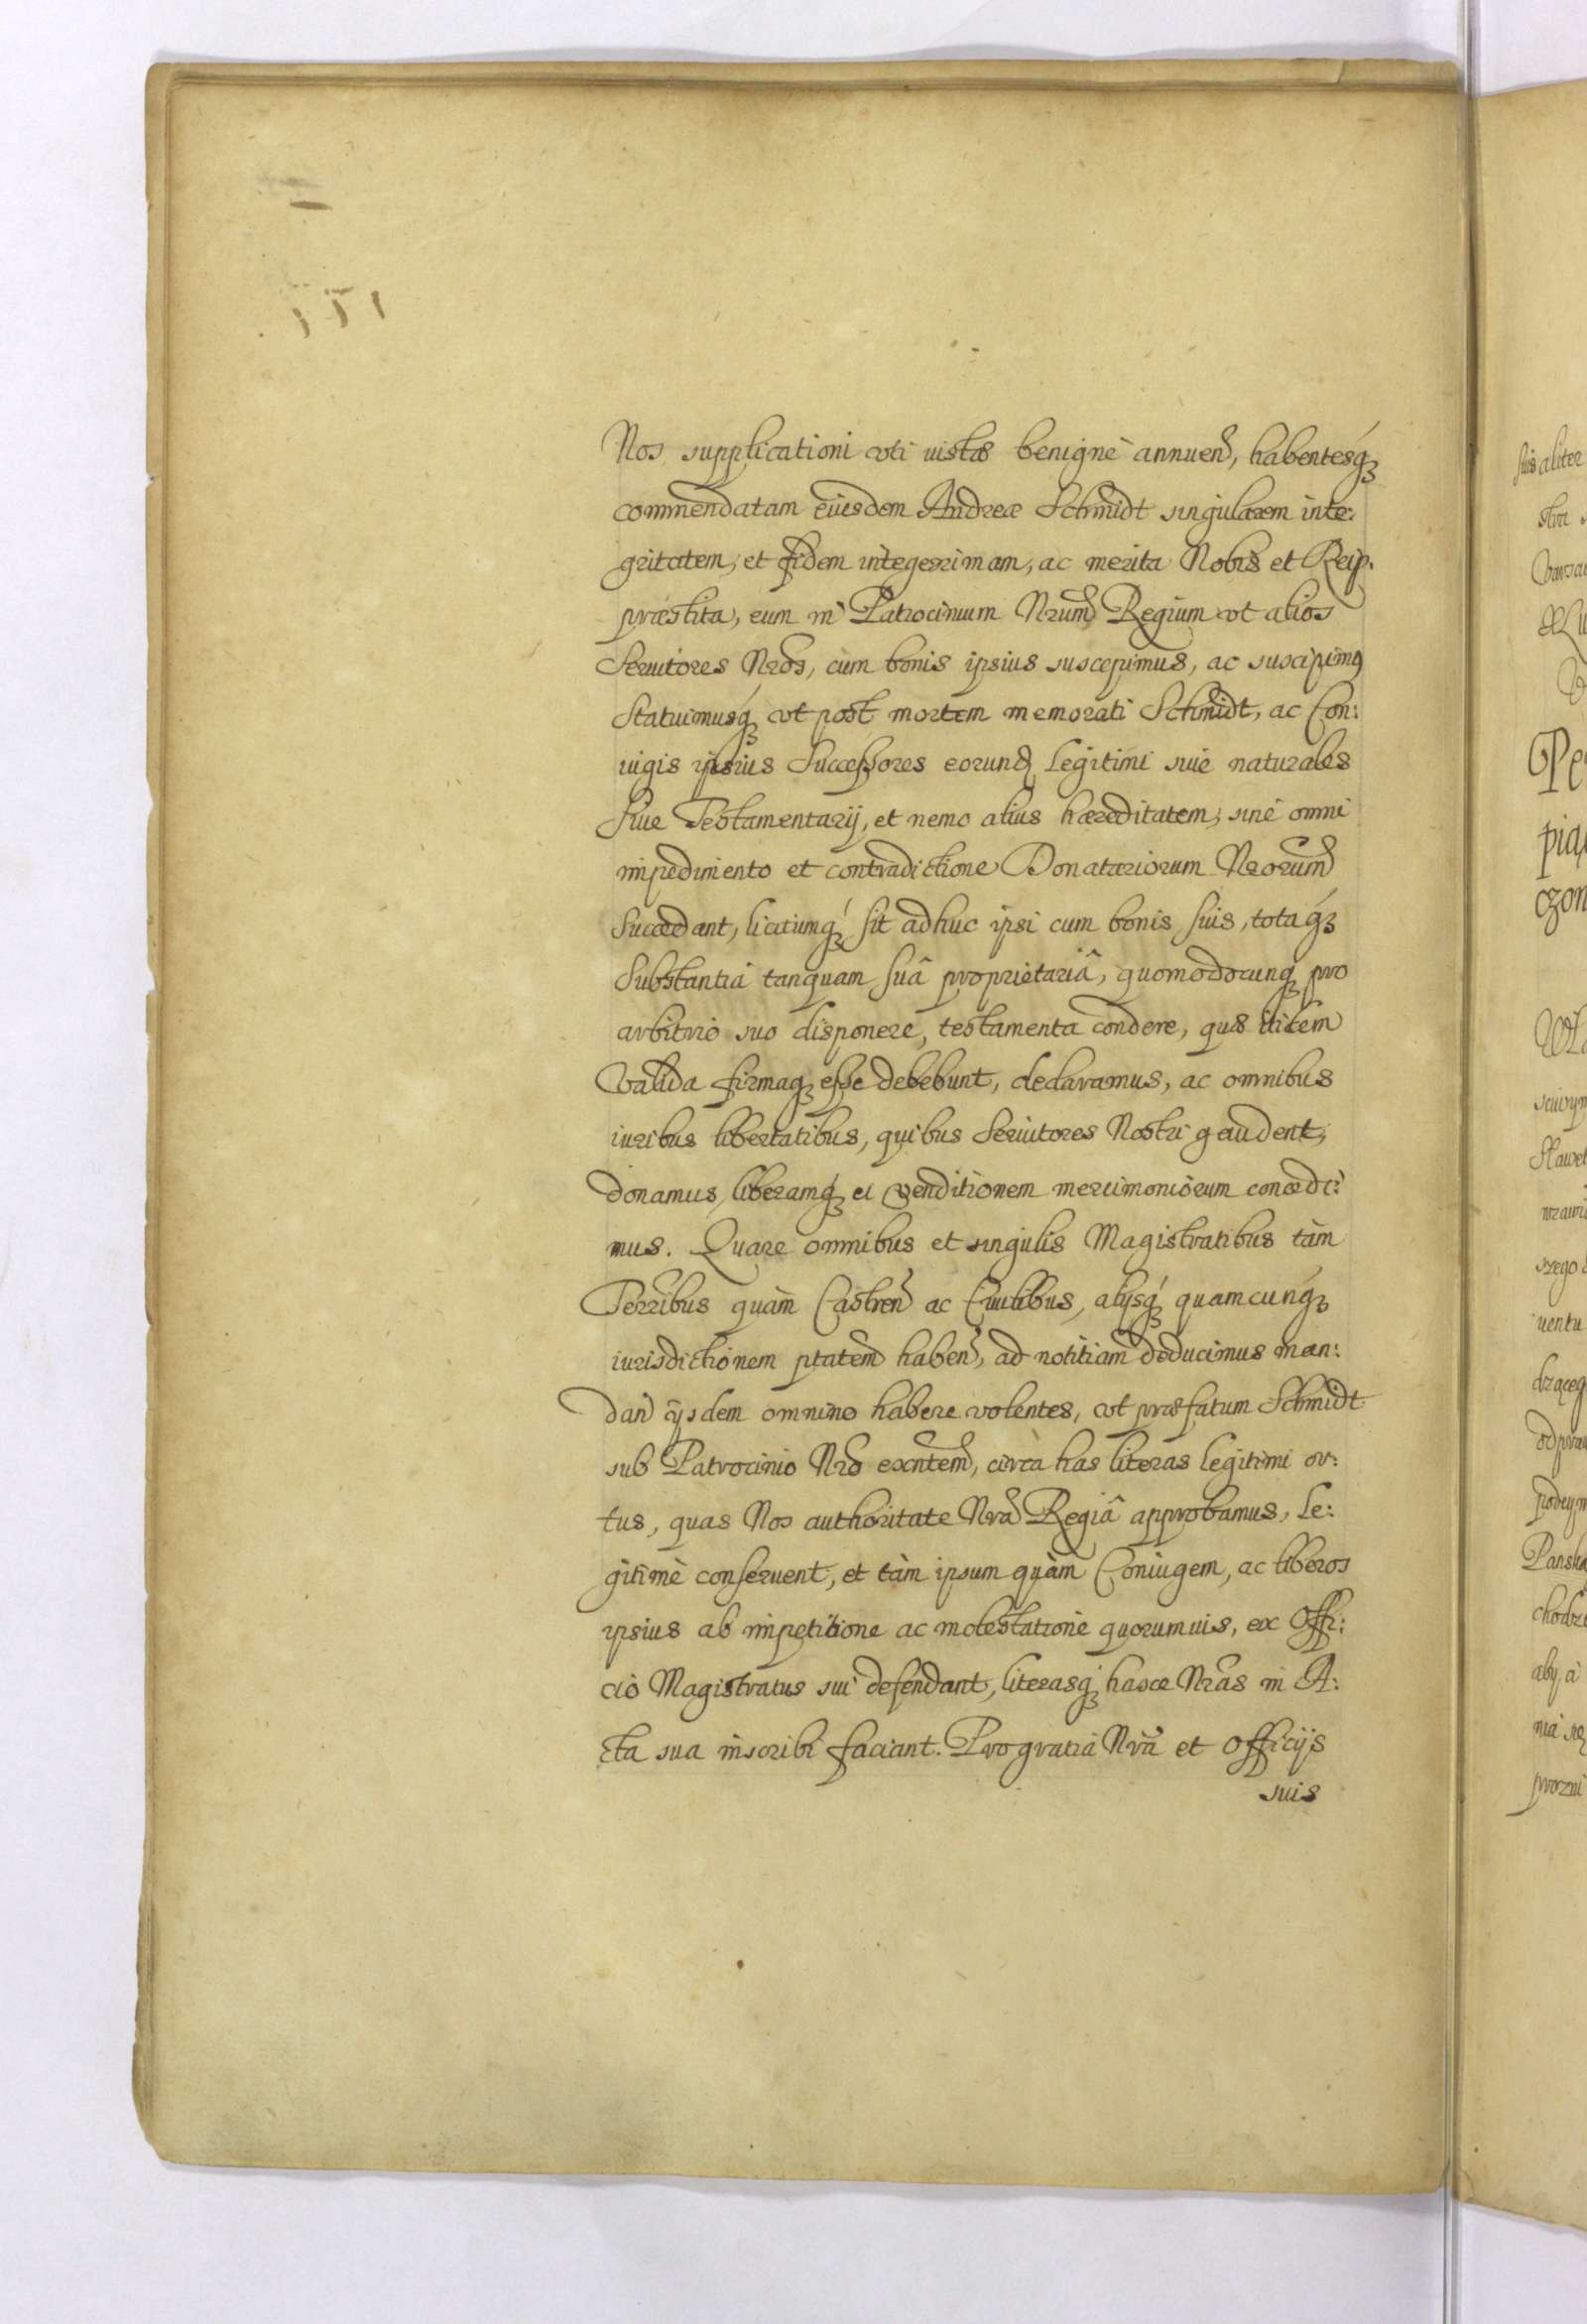 Nos supplicationi vti iustæ benignè annuen, habentesq́ꝫ
commendatam eiusdem Andreæ Schmidt singularem inte:
gritatem, et fidem integerrimam, ac merita Nobis et Reip.
præstita, eum in Patrocinium Nrum Regium vt alios
Seruitores Nros, cum bonis ipsius suscepimus, ac suscipimꝰ
Statuimusq́ꝫ vt post mortem memorati Schmidt, ac Con:
iugis ipsius Successores eorund. Legitimi siue naturales
Siue Testamentarij, et nemo alius hæreditatem, sine omni
impedimento et contradictione Donatariorum Nrorum
Succedant, licitumq́ꝫ sit adhuc ipsi cum bonis suis, totaq́ꝫ
Substantia tanquam suâ proprietariâ, quomodocunqꝫ pro
arbitrio suo disponere, testamenta condere, quæ itidem
Valida firmaqꝫ esse debebunt, declaramus, ac omnibus
iuribus libertatibus, quibus Seruitores Nostri gaudent,
donamus, liberamq́ꝫ ei venditionem mercimoniorum concedi:
mus. Quare omnibus et singulis Magistratibus tàm
Terribus quàm Castren ac Ciuilibus, alijsq́ꝫ quamcunq́ꝫ
iurisdictionem ptatem haben, ad notitiam deducimus man:
dan ijsdem omnino habere volentes, vt præfatum Schmidt
sub Patrocinio Nro exntem, circa has literas legitimi or:
tus, quas Nos authoritate Nra Regiâ approbamus, le:
gitimè conseruent, et tàm ipsum quàm Coniugem, ac liberos
ipsius ab impetitione ac molestatione quorumuis, ex Offi:
cio Magistratus sui defendant, literasq́ꝫ hasce Nras in A:
cta sua inscribi faciant. Pro gratia Nra et Officijs
suis